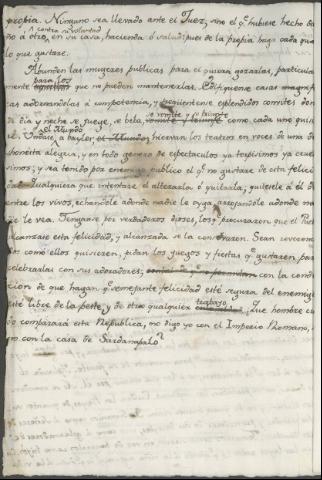 propia. Ninguno sea llevado ante el Juez, sino el q.e hubiere hecho da
contra su voluntad
ño á otro, en su casa, hacienda ó salud: pues de la propia haga cada qual
lo que gustare.
Abunden las mugeres publicas para el q.e quiera gozarlas, particular
para los
mente que no pueden mantenerlas. Edifiquense casas
cas adornandolas á competencia, y frequentense esplendidos convites don
se vomite y se
de dia y noche se juege, se beba, como cada uno guste
el Mundo
á baylar, hiervan los teatros en voces de una des
honesta alegria, y en todo genero de espectaculos ya torpisimos ya crue
y sea tenido por enemigo publico el q.e no gustare de esta felici
dad. Qualquiera que intentare el alterarla ó quitarla, quitesele á él de
entre los vivos, echandole adonde nadie le oyga, arrojandole adonde na
die le vea. Tenganse por verdaderos dioses, los q.e procuraren que el Pueblo
alcanzase esta felicidad, y alcanzada se la conservaren. Sean reveren
dos como ellos quisieren, pidan los juegos y fiestas q.e gustaren para
celebrarlas con sus adoradores, con la condi
cion de que hagan q.e semejante felicidad esté segura del enemigo
trabajo
esté libre de la peste, y de otro qualquier. ¿Que hombre cu
do comparará esta Republica, no digo yo con el Imperio Romano, si
no con la casa de Sardanapalo?